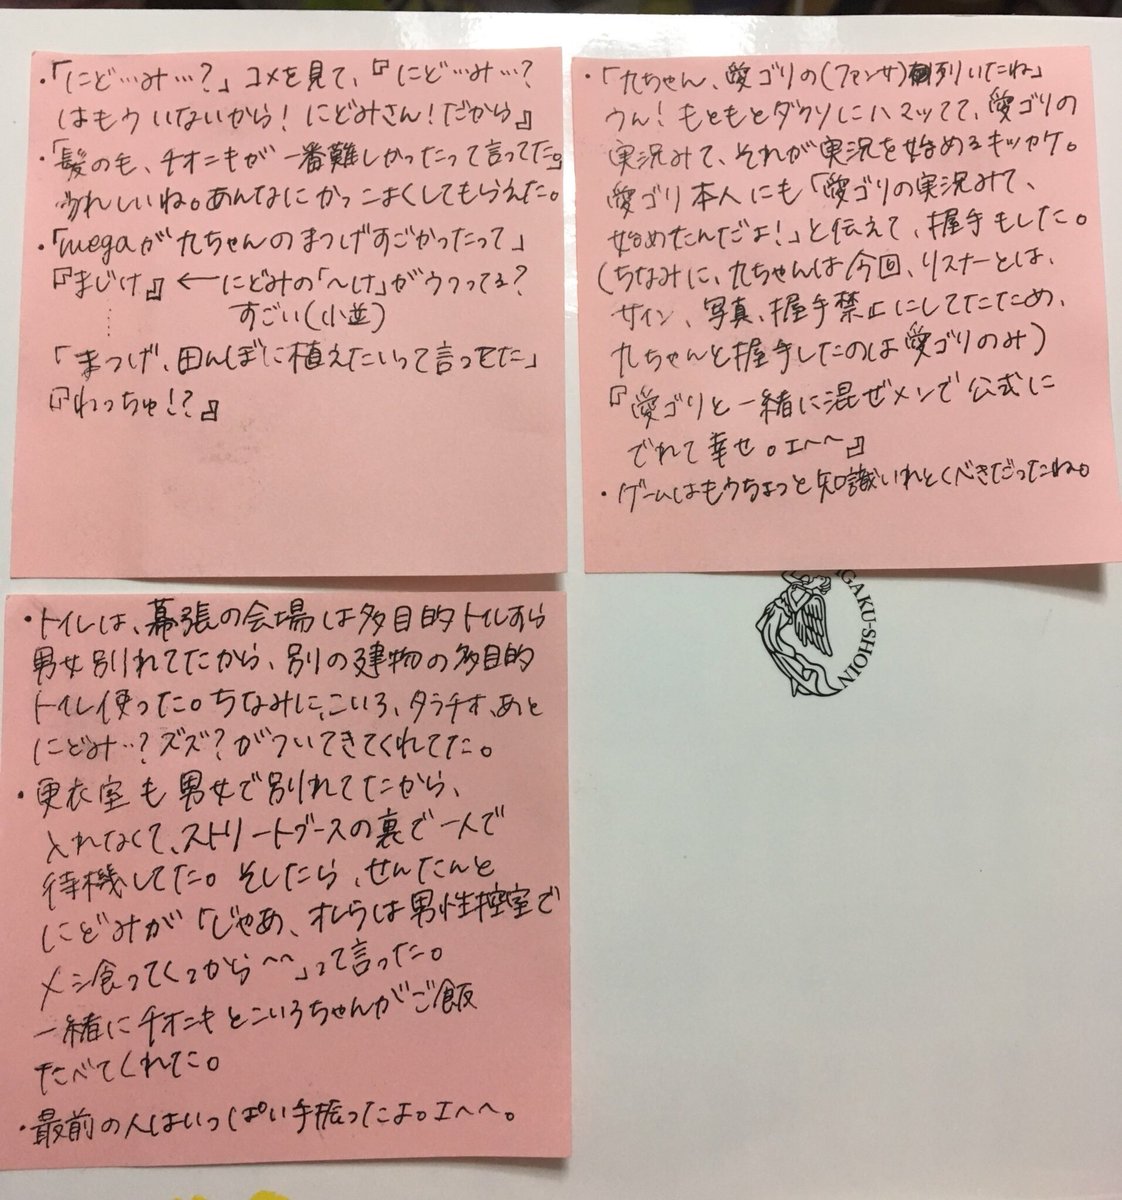 ・「にど…み…?」コメを見て、『にど…み…?
はもういないから!にどみさん!だから』
・「髪のも、チオニキが一番難しかったって言ってた。
うれしいね。あんなにかっこよくしてもらえた。
・「megaが九ちゃんのまつげすごかったって」
『まじけ』←にどみの「〜け」がウつってる?
すごい(小並)
「まつげ、田んぼに植えたいって言ってた」
『わっちゅ!?』
・「九ちゃん、愛ゴリの(ファンサ)列いたね」
うん!もともとダクソにハマッてて、愛ゴリの
実況みて、それが実況を始めるキッカケ。
愛ゴリ本人にも「愛ゴリの実況みて、
始めたんだよ!」と伝えて、握手もした。
(ちなみに、九ちゃんは今回、リスナーとは、
サイン、写真、握手禁止にしてたため、
九ちゃんと握手したのは愛ゴリのみ)
『愛ゴリと一緒に混ぜメンで公式に
でれて幸せ。エへへ』
・ゲームはもうちょっと知識いれとくべきだったね。
・トイレは、幕張の会場は多目的トイレすら
男女別れてたから、別の建物の多目的
トイレ使った。ちなみに、こいろ、タラチオ、あと
にどみ…?ズズ?がついてきてくれてた。
・更衣室も男女で別れてたから、
入れなくて、ストリートブースの裏で一人で
待機してた。そしたら、せんたんと
にどみが「じゃあ、オレらは男性控室で
メシ食ってくっから^^」って言った。
一緒にチオニキとこいろちゃんがご飯
たべてくれた。
・最前の人はいっぱい手振ったよ。エへへ。
IGAKU-SHOIN